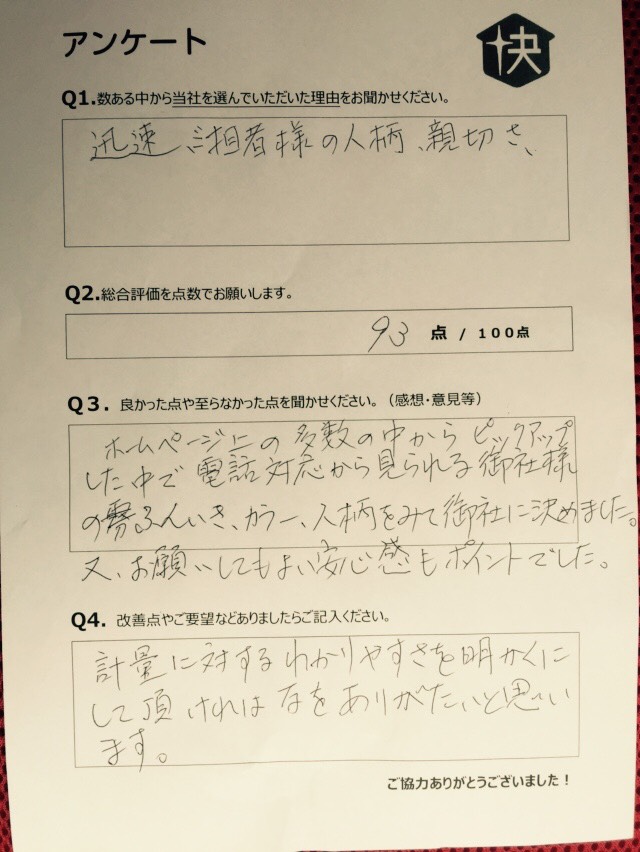 アンケート
快
Q1.数ある中から当社を選んでいただいた理由をお聞かせください。
迅速、ご担者様の人柄、親切さ、
Q2.総合評価を点数でお願いします。
93 点 / 100点
Q3. 良かった点や至らなかった点を聞かせください。（感想・意見等）
ホームページ上の多数の中からピックアップ
した中で電話対応から見られる御社様
のふんいき、カラー、人柄をみて御社に決めました。
又、お願いしてもよい安心感もポイントでした。
Q4. 改善点やご要望などありましたらご記入ください。
計量に対するわかりやすさを明かくに
して頂ければなをありがたいと思い
ます。
ご協力ありがとうございました！